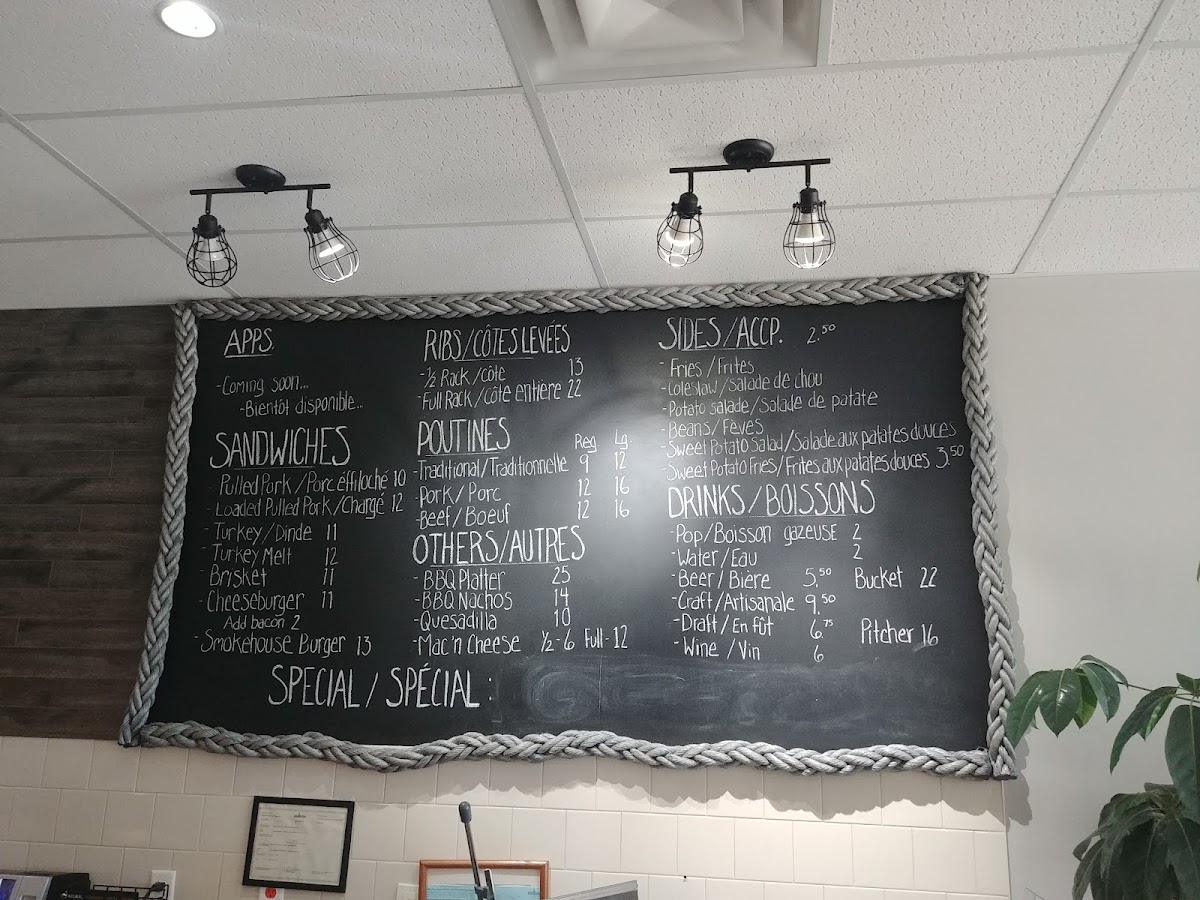 APPS.
-Coming soon...
-Bientôt disponible...
SANDWICHES
-Pulled Pork/Porc éffiloché 10
-Loaded Pulled Pork/Chargé 12
-Turkey/Dinde 11
-Turkey Melt 12
-Brisket 11
-Cheeseburger 11
Add bacon 2
-Smokehouse Burger 13
RIBS/CÔTES LEVÉES
-½ Rack/côte 13
-Full Rack/côte entière 22
POUTINES Reg. Lg.
-Traditional/Traditionnelle 9 12
-Pork/Porc 12 16
-Beef/Boeuf 12 16
OTHERS/AUTRES
-BBQ Platter 25
-BBQ Nachos 14
-Quesadilla 10
-Mac'n Cheese ½-6 Full-12
SIDES/ACCP. 2.50
-Fries/Frites
-Coleslaw/Salade de chou
-Potato salade/Salade de patate
-Beans/Fèves
-Sweet Potato Salad/Salade aux patates douces
-Sweet Potato Fries/Frites aux patates douces 3.50
DRINKS/BOISSONS
-Pop/Boisson gazeuse 2
-Water/Eau 2
-Beer/Bière 5.50 Bucket 22
-Craft/Artisanale 9.50
-Draft/En fût 6.75 Pitcher 16
-Wine/Vin 6
SPECIAL/SPÉCIAL: